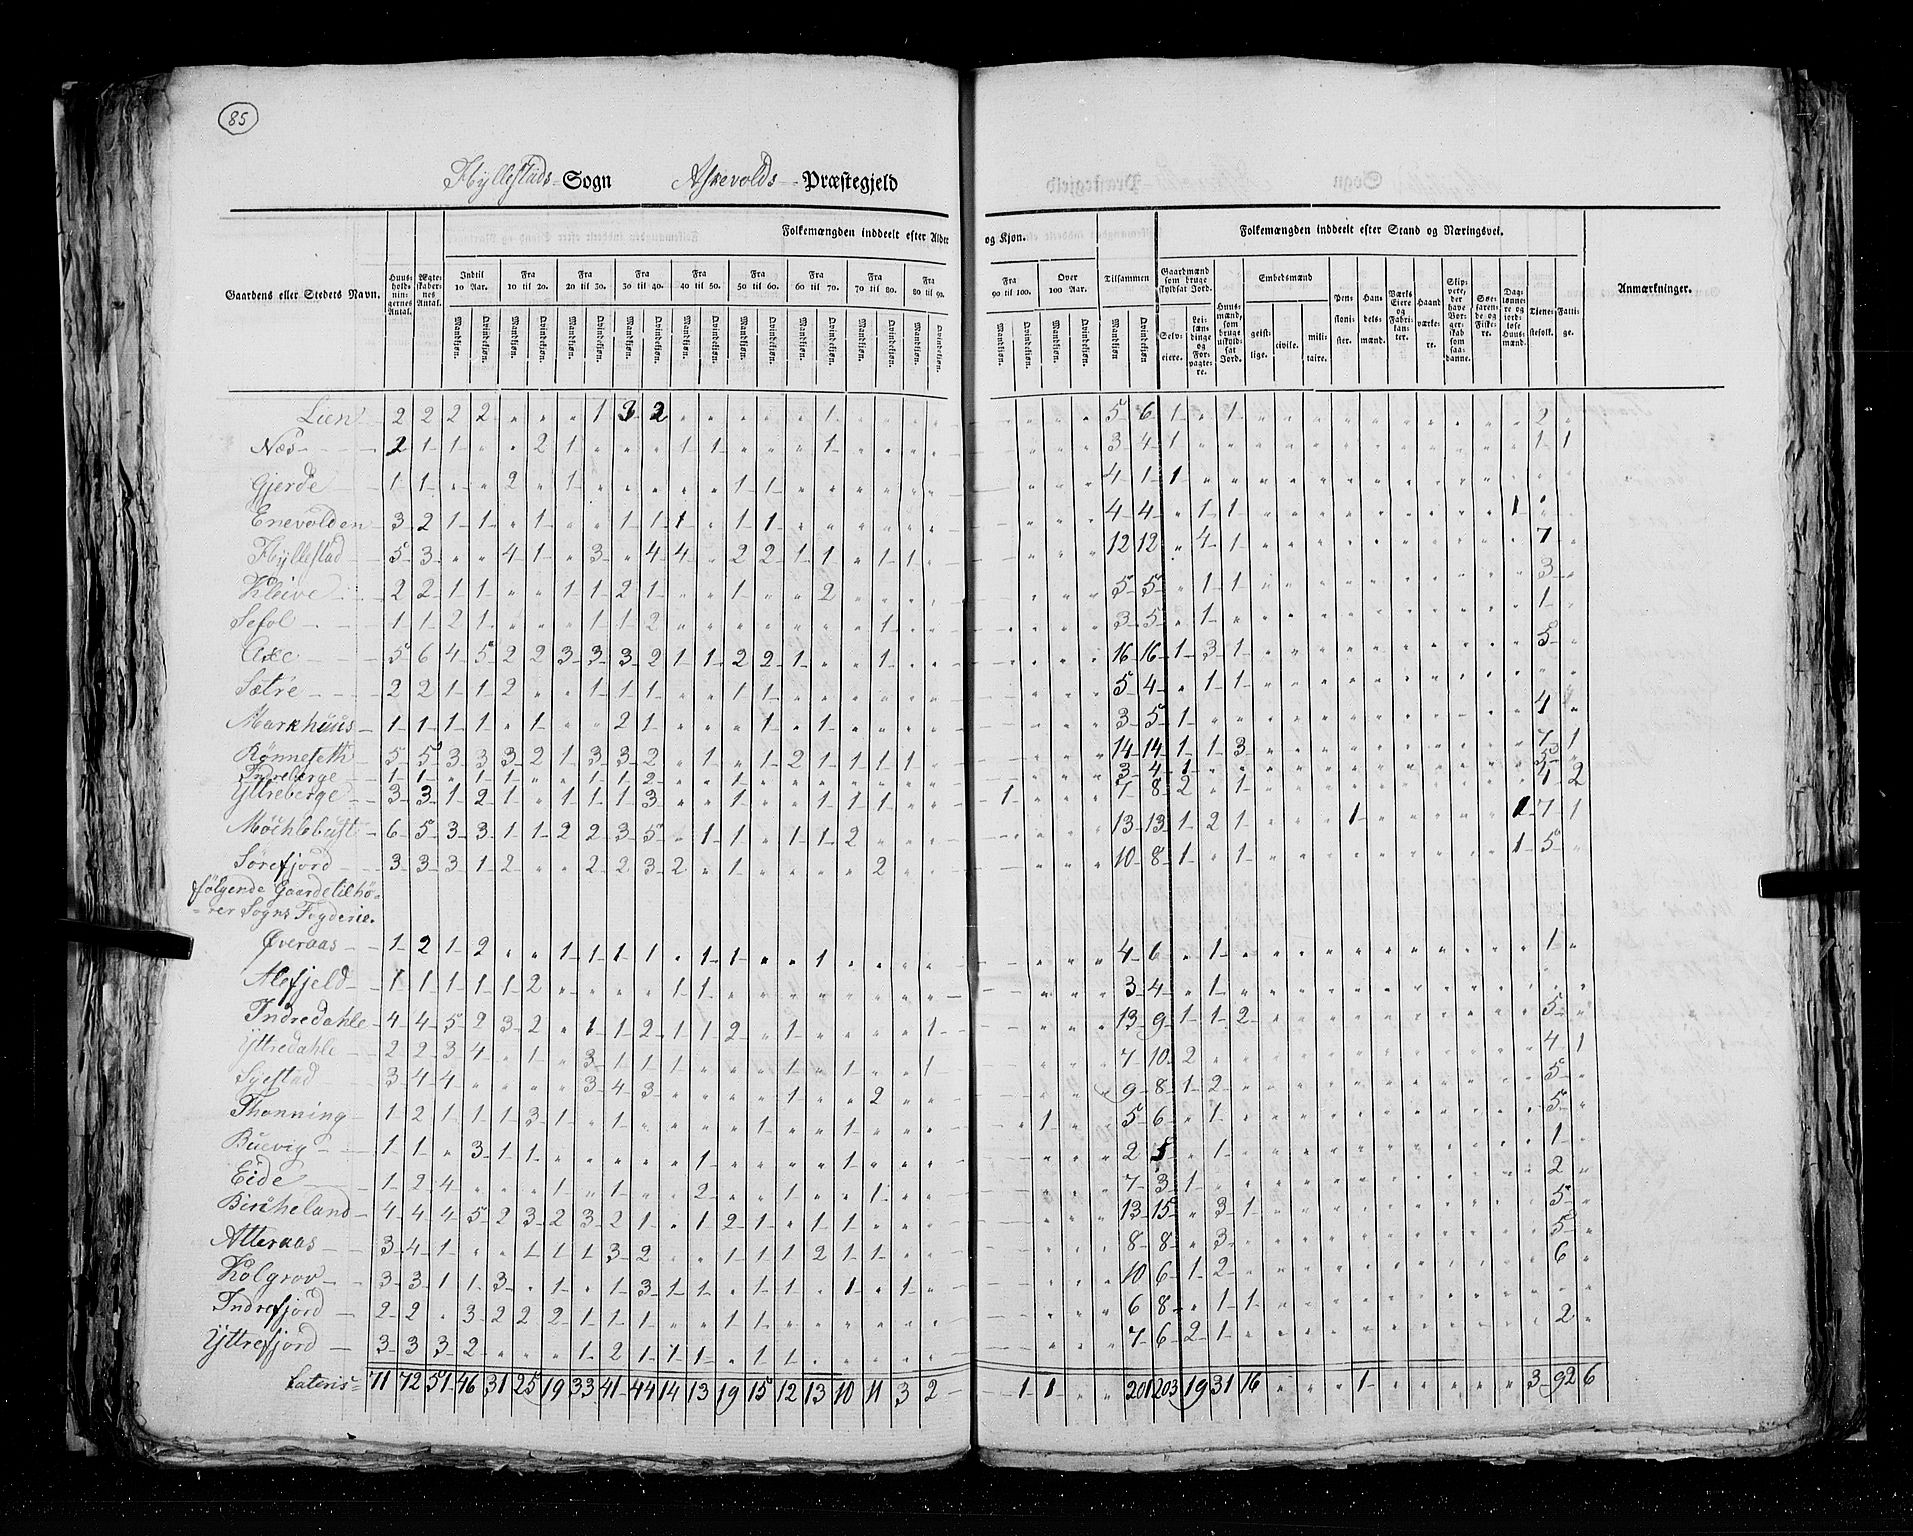 85
Hyllestads Sogn Askevolds Præstegjeld
Folkemængden inddeelt efter Alder og Kjøn.
Folkemængden inddeelt efter Stand og Næringsvei.
Gaardens eller Stedets Navn.
Huusholdningernes Antal.
Ægteskabernes Antal.
Indtil 10 Aar.
Fra 10 til 20.
Fra 20 til 30.
Fra 30 til 40.
Fra 40 til 50.
Fra 50 til 60.
Fra 60 til 70.
Fra 70 til 80.
Fra 80 til 90.
Fra 90 til 100.
Over 100 Aar.
Tilsammen
Mandkjøn. Qvindekjøn.
Gaardmænd som bruge skyldsat Jord.
Selveiere.
Leilændinge og Forpagtere.
Huusmænd, som bruge uskyldsat Jord.
Embedsmænd
geistlige. civile. militaire.
Pensionister.
Handelsmænd.
Værks Eiere og Fabrikanter.
Haandværkere.
Søefarende og Fiskere.
Daglønnere og jordløse Huusmænd.
Tjenestefolk.
Fattige.
Anmærkninger.
Lien 2 2 2 2 " " " 1 3 2 " " " " " 1 5 6 1 " 1 2
Næs 2 1 1 " " 2 1 " " " 1 1 " " " 1 3 4 1 1 1
Gjerde 1 1 " " 2 " 1 " " " " " 1 1 4 1 1
Enevolden 3 2 1 1 " 1 " " 1 1 1 " 1 1 4 4 " 1 1 1
Hyllestad 5 3 " " 4 1 " 3 " 4 4 " 2 2 1 1 " 1 1 12 12 " 4 1 7
Kleive 2 2 1 1 " " 1 1 2 1 " " 1 " " 2 5 5 " 1 1 3
Sefol 1 1 2 1 " " " 1 1 2 " " " " " " " 1 3 5 " 1 1
Axe 5 6 4 5 2 2 3 3 3 2 1 1 2 2 1 " " 1 16 16 1 3 1 5
Sætre 2 2 1 1 2 " " 1 1 1 " " 1 1 5 4 " 1 1
Markhuus 1 1 1 1 " 1 " " 2 1 " " " 1 " 1 3 5 1 4
Rønneseth 5 5 3 3 3 2 1 3 3 2 " 1 " 1 2 1 1 1 14 14 1 1 3 7 1
Indreberge 1 1 " 1 1 " " 1 1 2 " " 1 3 4 1 5
Yttreberge 3 3 1 2 1 " 1 1 1 3 " " 1 " " 1 1 1 1 7 8 2 " 1 4 2
Møchlebust 6 5 3 3 1 1 2 2 3 5 " 1 1 " 1 1 2 13 13 1 2 1 1 1 7 1
Sørefjord 3 3 3 1 2 " " 2 2 3 2 " 1 " " " " 2 10 8 1 " 1 1 5
følgende Gaarde tilhø-
-rer Sogns Fogderie.
Øveraas 1 2 1 2 " " 1 1 1 1 " 1 1 " " 1 4 6 " 1 1
Alefjeld 1 1 1 1 1 2 " " " " 1 1 3 4 " 1
Indredahle 4 4 5 2 3 2 " 1 1 2 1 1 2 " 1 " " " " 1 13 9 1 1 2 5
Yttredahle 2 2 3 4 " 1 " 3 1 1 1 " " " 1 " 1 " " 1 7 10 2 4 1
Syestad 3 4 4 " " " " 3 4 3 " " " " 1 " " 2 9 8 1 2 5
Thonning 1 2 1 1 1 3 1 " 1 " " " " 1 " 1 1 5 6 " 1 5
Buevig 1 1 " 3 1 1 " " " " " 1 " " " " 1 2 5 " 1 1
Eide 1 2 4 " " " 1 " 1 " " 2 " " 1 " " 1 7 3 1 2
Bircheland 4 4 4 5 2 3 2 3 2 1 " 1 2 1 " 1 1 13 15 " 3 1 5
Atteraas 3 4 1 " " 1 1 1 3 2 " " 1 1 1 2 1 1 8 8 " 3 5
Kolgrov 3 3 1 1 3 " 1 " 1 3 1 1 " 1 1 " 1 " 1 10 6 1 2 6
Indrefjord 2 2 " 3 2 2 2 1 1 1 " " 1 1 6 8 " 1 1
Yttrefjord 3 3 3 2 " " " 1 2 1 1 1 " 1 1 7 6 2 1 2
Lateris 71 72 51 46 31 25 19 33 41 44 14 13 19 15 12 13 10 11 3 2 " 1 1 " " 201 203 19 31 16 " " " 1 3 92 6